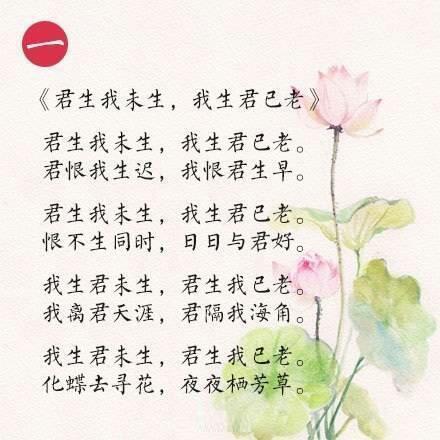 一
《君生我未生，我生君已老》
君生我未生，我生君已老。
君恨我生迟，我恨君生早。
君生我未生，我生君已老。
恨不生同时，日日与君好。
我生君未生，君生我已老。
我离君天涯，君隔我海角。
我生君未生，君生我已老。
化蝶去寻花，夜夜栖芳草。